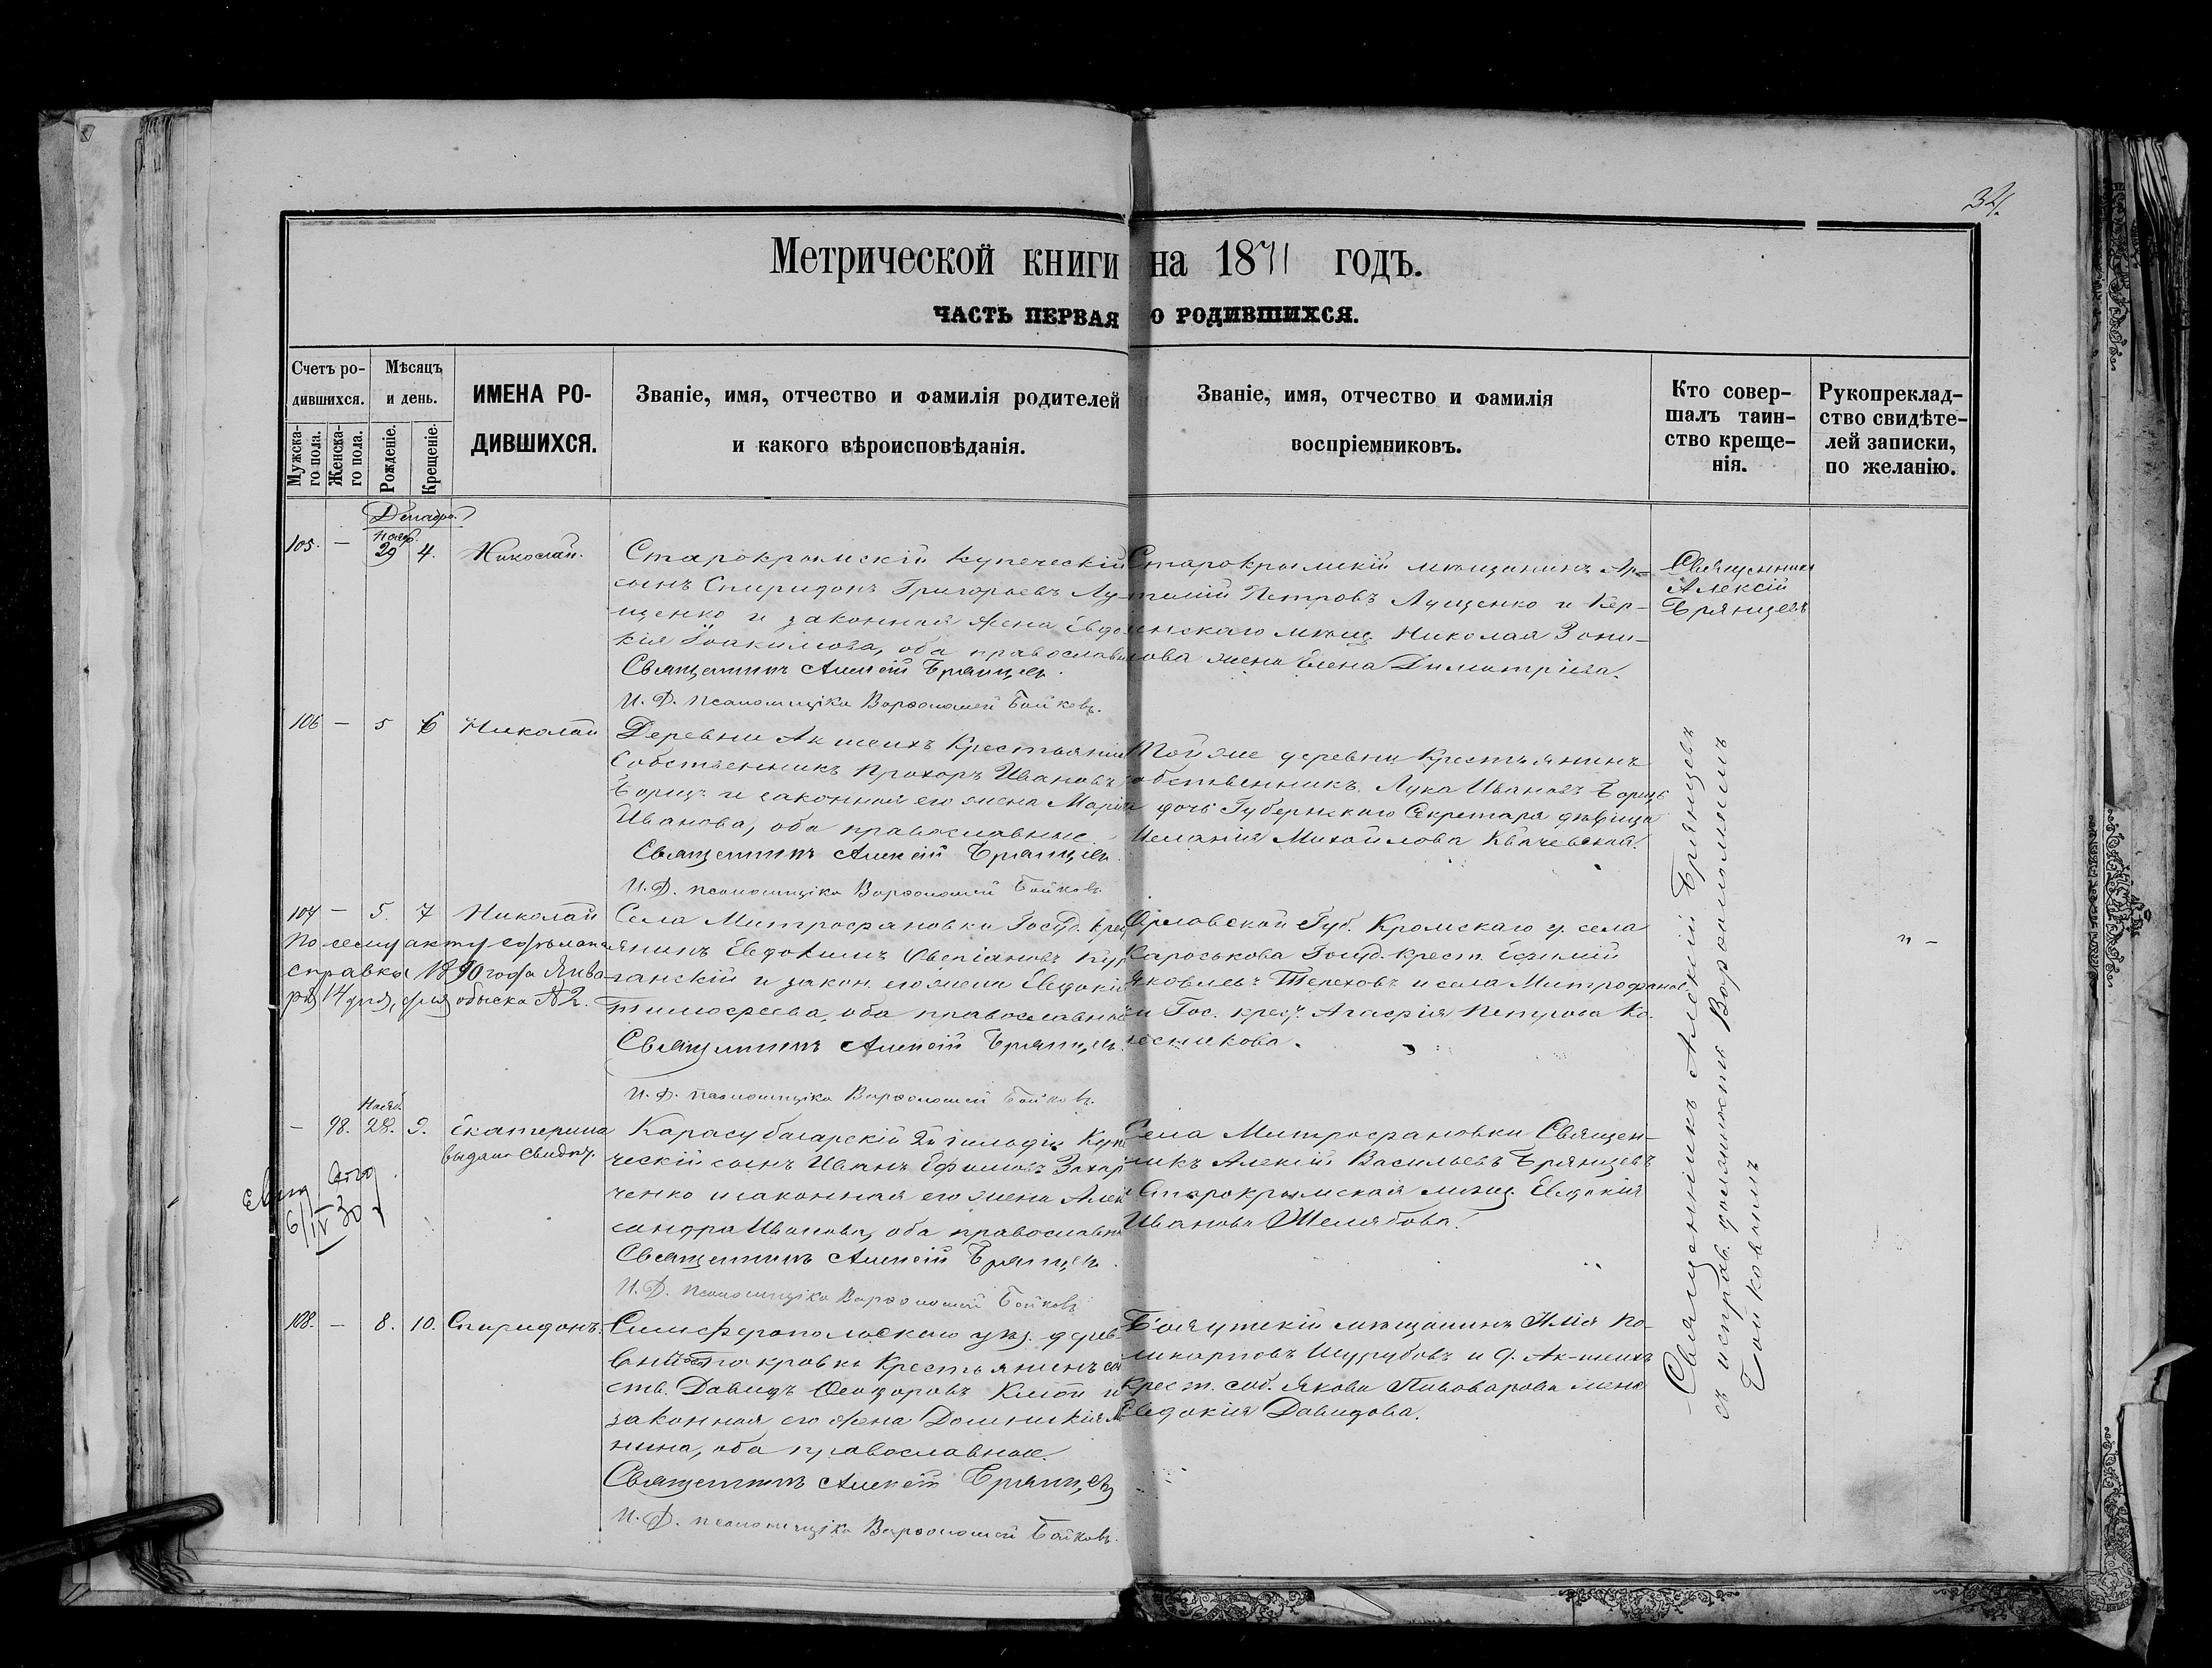 34.
Метрической книги на 1871 годъ.
ЧАСТЬ ПЕРВАЯ О РОДИВШИХСЯ.
Счетъ ро-
дившихся.
Мужска-
го пола.
Женска-
го пола.
Мѣсяцъ
и день.
Рожденіе.
Крещеніе.
ИМЕНА РО-
ДИВШИХСЯ.
Званіе, имя, отчество и фамилія родителей
и какого вѣроисповѣданія.
Званіе, имя, отчество и фамилія
воспріемниковъ.
Кто совер-
шалъ таин-
ство креще-
нія.
Рукопреклад-
ство свидѣте-
лей записки,
по желанію.
Декабрь
Нояб.
105. — 29 4. Николай.
Старокрымскій купеческій
сынъ Спиридонъ Григорьевъ Лу-
щенко и законная жена Евдо-
кія Іоакимова, оба православн
Священникъ Алексій Брянцевъ.
И. Д. псаломщика Варфоломей Бойковъ.
Старокрымскій мѣщанинъ Ар-
темій Петровъ Лущенко и Кер-
ченскаго мѣщ. Николая Зони-
лова жена Елена Димитріева.
Священникъ
Алексій
Брянцевъ
106 — 5 6 Николай
Деревни Ак шеихъ Крестьянин
Собственникъ Прохоръ Ивановъ
Борищ и законная его жена Марія
Иванова, оба православные
Священникъ Алексій Брянцевъ.
И. Д. псаломщика Варфоломей Бойковъ.
Той же деревни Крестьянинъ
собственникъ Лука Ивановъ Борищ
и дочь Губернскаго Секретаря дѣвица
Меланія Михайлова Квачевская.
107 — 5. 7 Николай
По сему акту сдѣлана
справка 1890 года Янва-
ря 14 дня, для обыска № 2.
Села Митрофановки Госуд. крест
янинъ Евдокимъ
ганскій и закон. его жена Евдокія
Тимофеева, оба православные
Священникъ Алексій Брянцевъ.
И. Д. псаломщика Варфоломей Бойковъ.
Орловской Губ. Кромскаго у. села
Кароськова Госуд. крест. Ефимій
Яковлевъ Тереховъ и села Митрофанов
и Гос. крест. Агафія Петрова Ко-
лесникова.
Нояб.
— 98. 28. 9. Екатерина
выдано свидѣт.
6/IV 30
Карасубазарскій 2й гильдіи Куп
ческій сынъ Иванъ Ефимовъ Захар
ченко и законная его жена Алек
сандра Иванова, оба православн
Священникъ Алексій Брянцевъ.
И. Д. псаломщика Варфоломей Бойковъ
Села Митрофановки Священ-
никъ Алексій Васильевъ Брянцевъ
и Старокрымская мѣщ. Евдокія
Иванова Желябова.
108. — 8. 10. Спиридонъ.
Симферопольскаго уѣз. дерев-
Покровки Крестьянинъ соб
ств. Давидъ Ѳеодоровъ Клой и
законная его жена Домникія
нина, оба православные.
Священникъ Алексій Брянцевъ
И. Д. псаломщика Варфоломей Бойковъ.
мѣщанинъ Илія По-
ликарповъ Шурубовъ и д. Ак-шеихъ
Крест. соб. Якова Пивоварова жена
Евдокія Давидова.
Священникъ Алексій Брянцевъ
съ исправ. должность Варфоломеемъ
Бойковымъ
" -